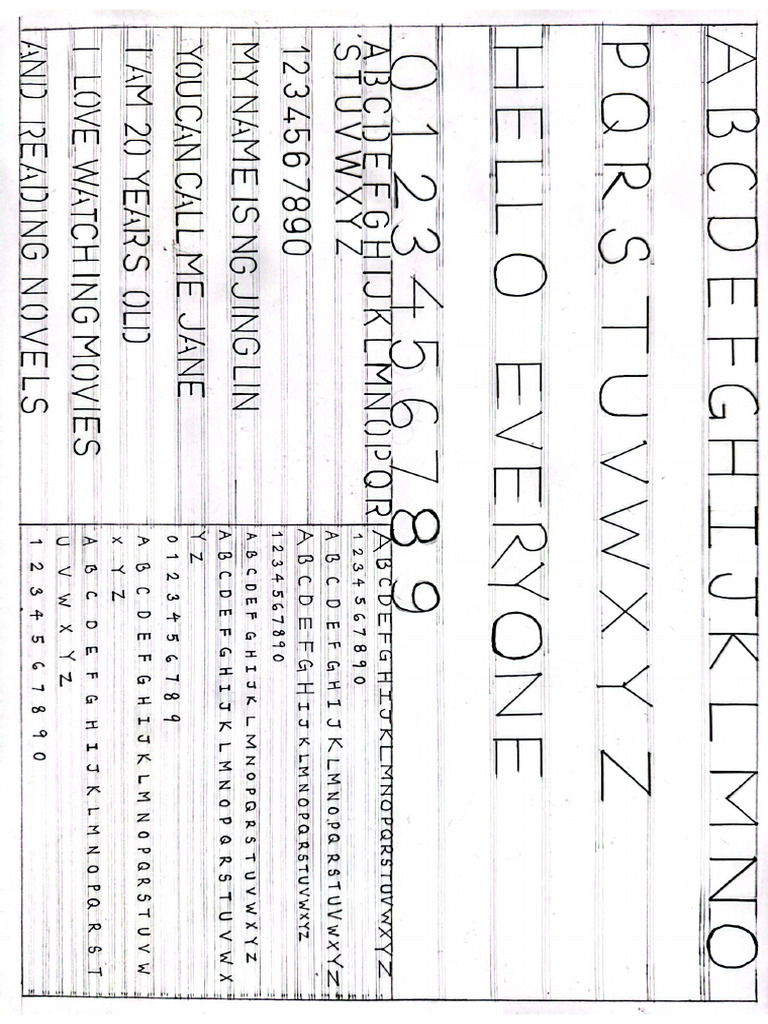 ABCDEFGHIJKLMNO
PQRSTUVWXYZ
HELLO EVERYONE
0123456789
ABCDEFGHIJKLMNOPQR
STUVWXYZ
1234567890
MY NAME IS NG JING LIN
YOU CAN CALL ME JANE
I AM 20 YEARS OLD
I LOVE WATCHING MOVIES
AND READING NOVELS
ABCDEFGHIJKLMNOPQRSTUVWXYZ
1234567890
ABCDEFGHIJKLMNOPQRSTUVWXYZ
ABCDEFGHIJKLMNOPQRSTUVWXYZ
1234567890
ABCDEFGHIJKLMNOPQRSTUVWXYZ
ABCDEFGHIJKLMNOPQRSTUVWX
YZ
0123456789
ABCDEFGHIJKLMNOPQRSTUVW
XYZ
ABCDEFGHIJKLMNOPQRST
UVWXYZ
1234567890